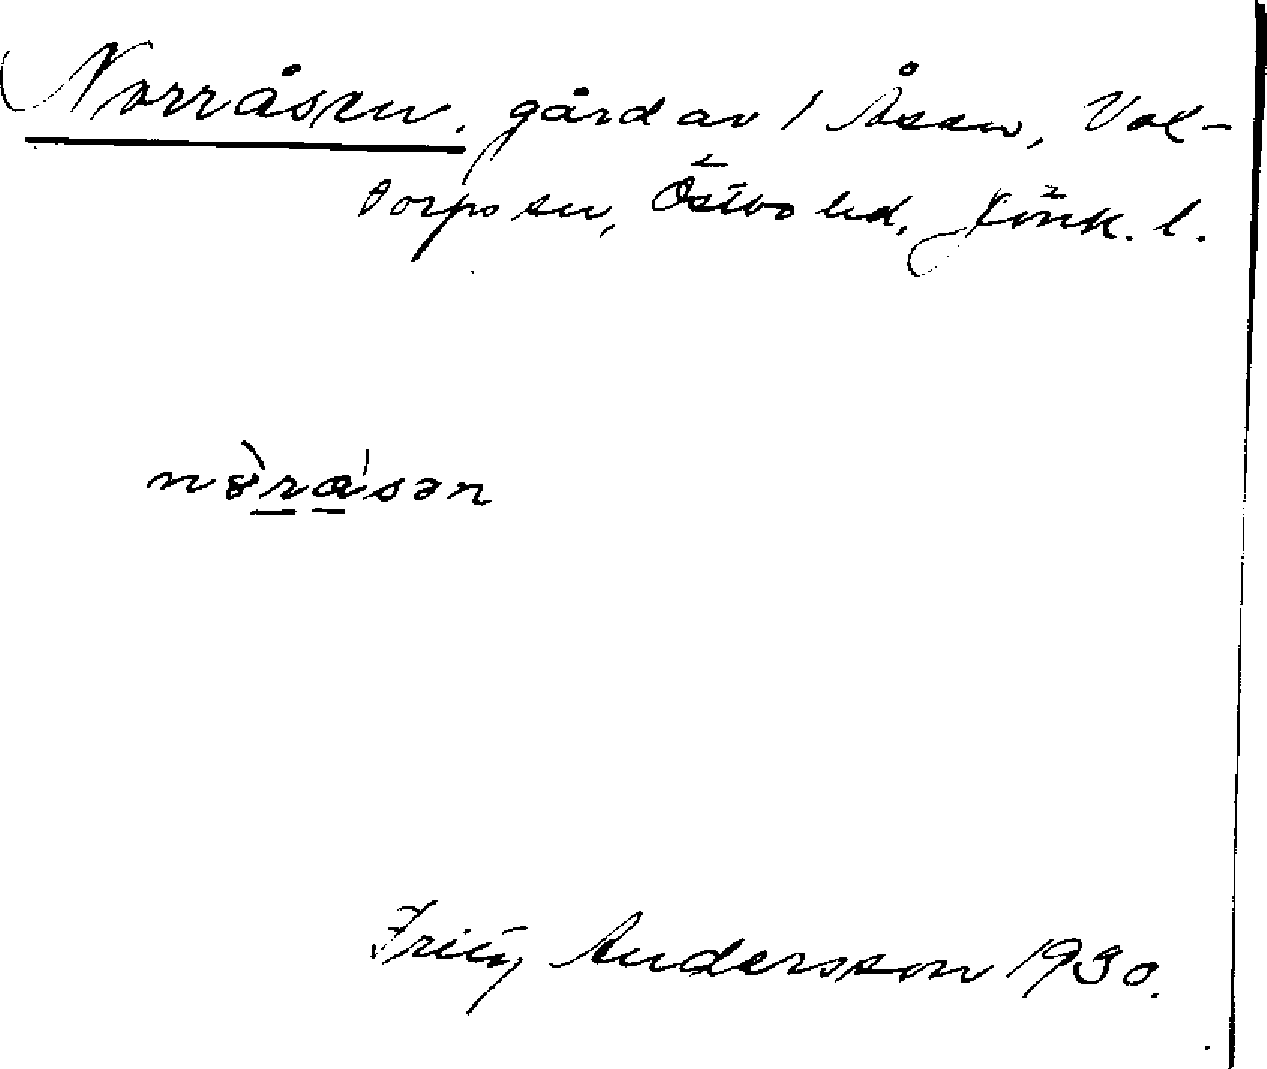 Norråsen, gård av 1 Åsen, Val-
torps sn, Östbo hd, Jönk. l.
nɔ̀rɑ́sən
Fritz Andersson 1930.